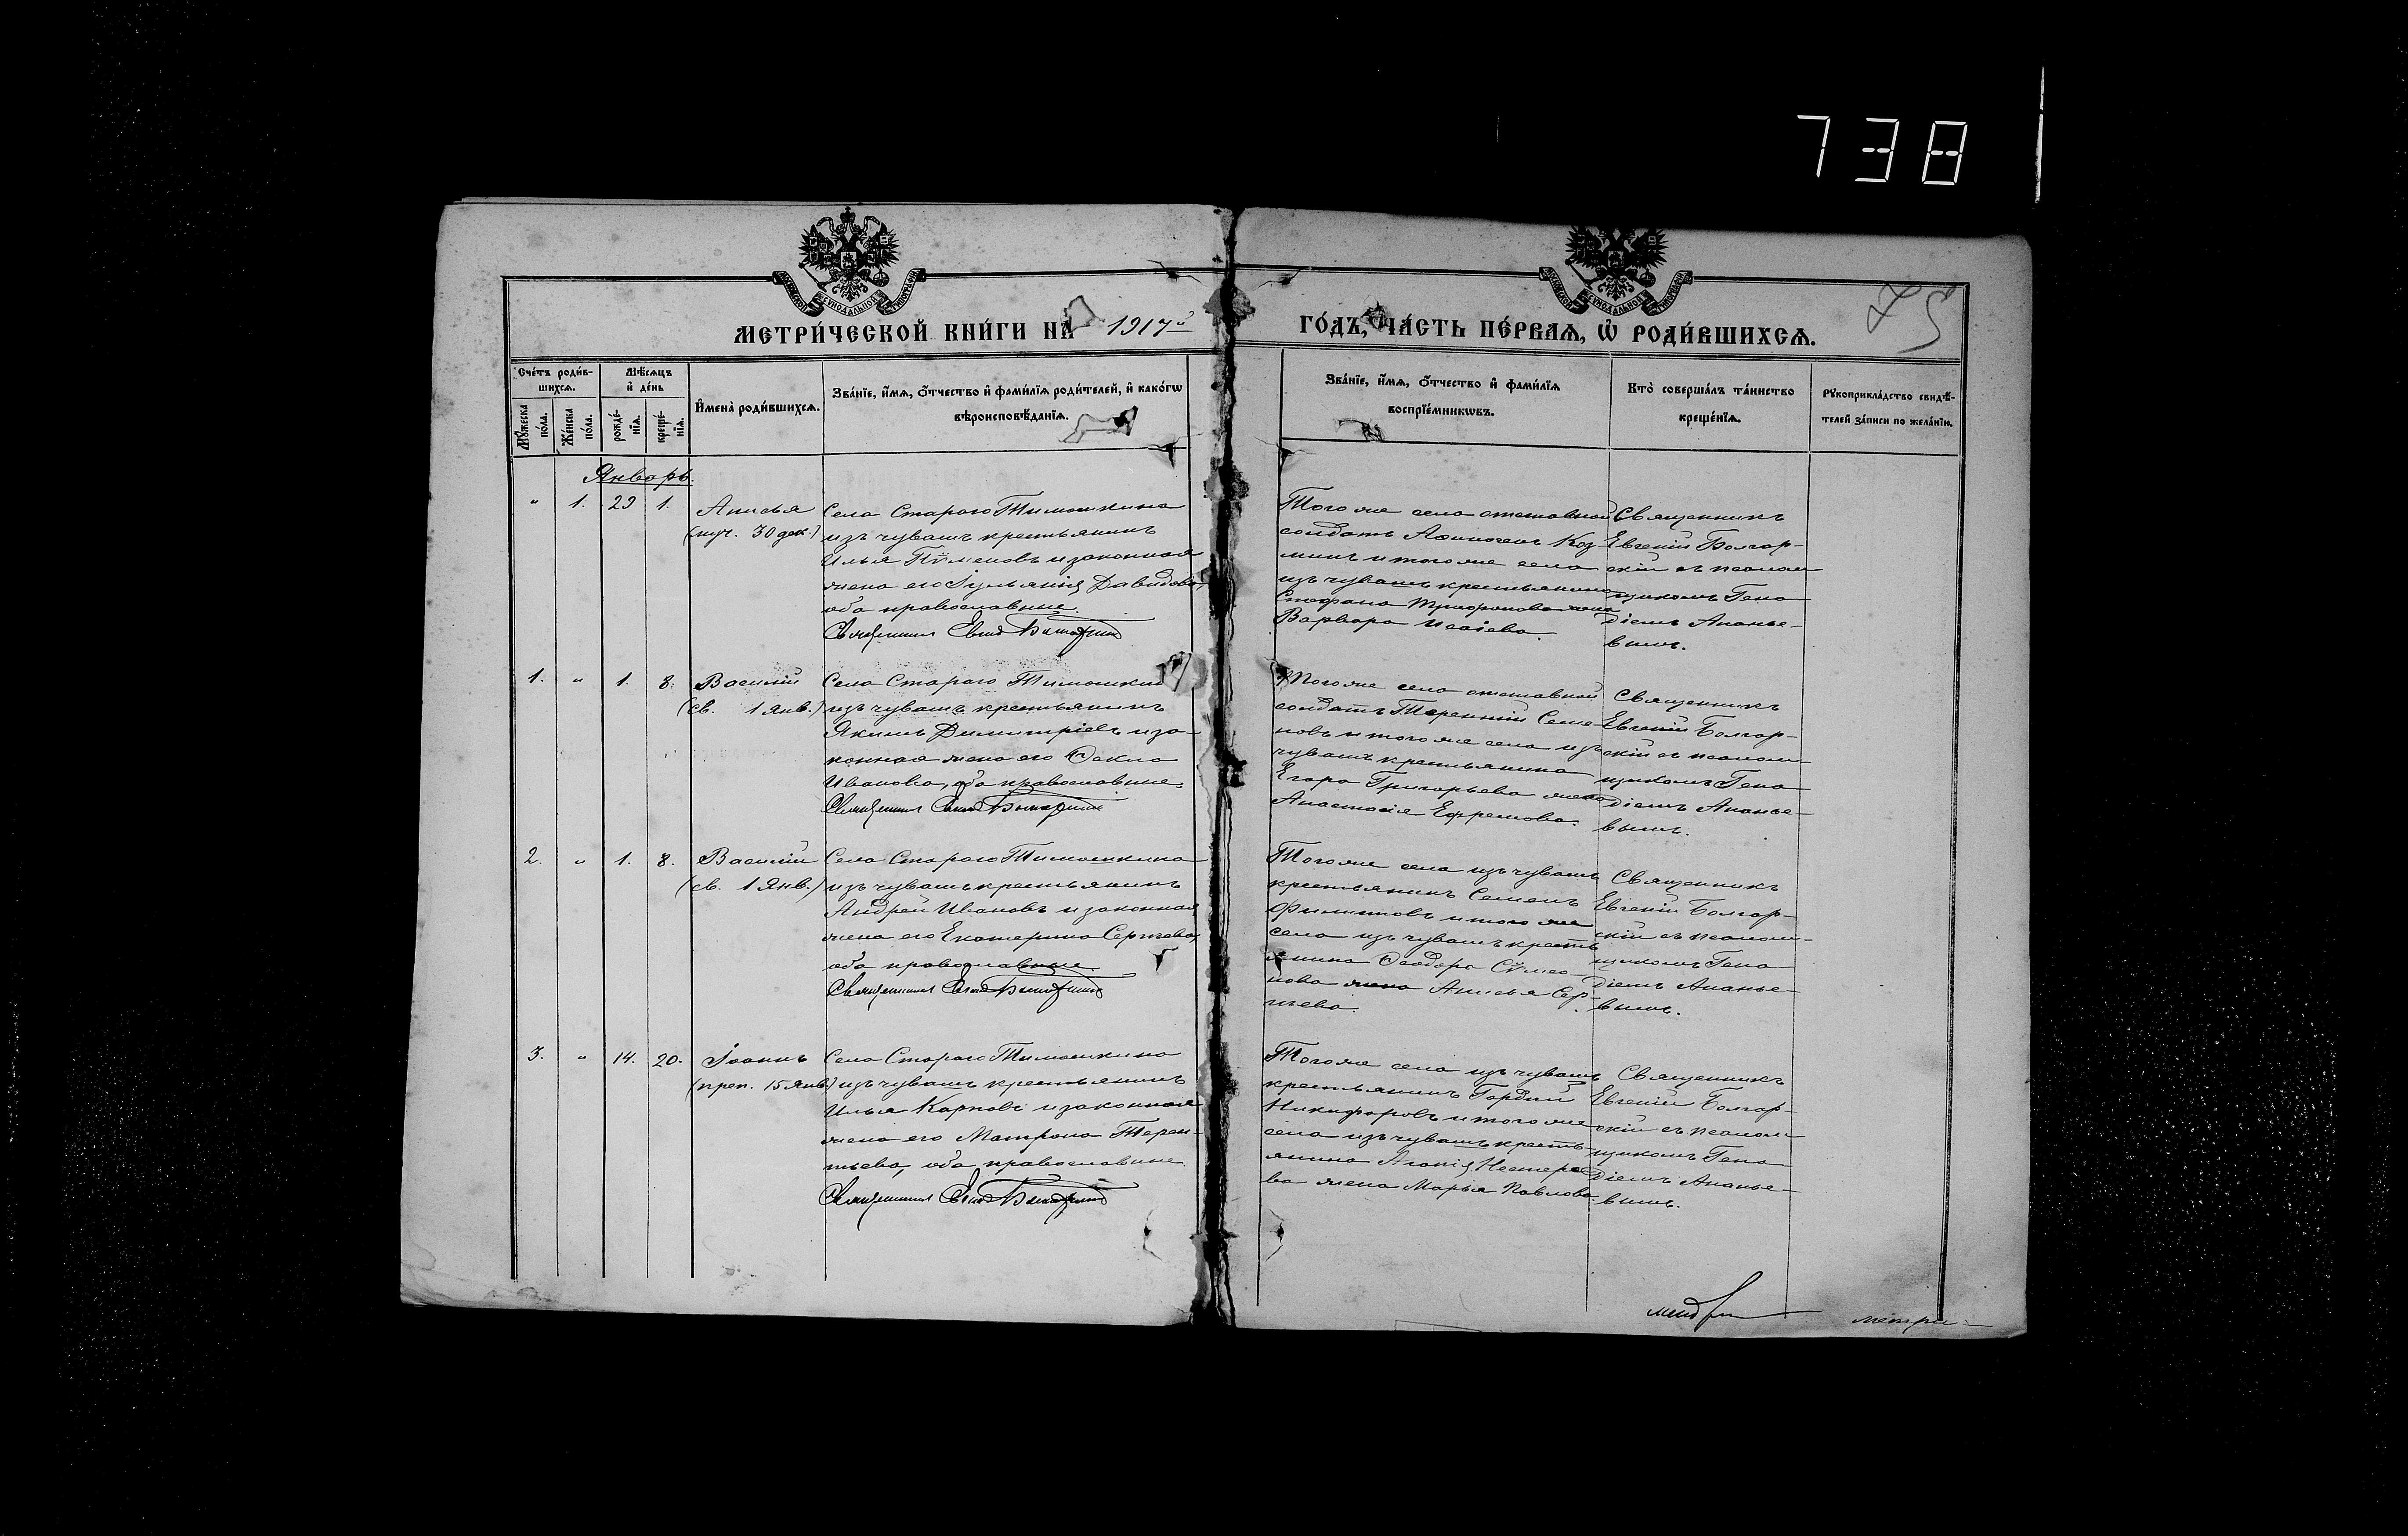 738
75
МОСКОВСКОЙ СѴНОДАЛЬНОЙ ТИПОГРАФІИ
МОСКОВСКОЙ СѴНОДАЛЬНОЙ ТИПОГРАФІИ
МЕТРИ́ЧЕСКОЙ КНИ́ГИ НА 1917й
ГО́ДЪ, ЧА́СТЬ ПЕ́РВАѦ, Ѡ҆ РОДИ́ВШИХСѦ.
Сче́тъ роди́в-
шихсѧ.
Мꙋ́жеска
по́ла.
Же́нска
по́ла.
Мѣ́сѧцъ
и҆ де́нь
рожде́-
нїѧ.
креще́-
нїѧ.
И҆мена̀ роди́вшихсѧ.
Зва́нїе, и҆́мѧ, ѻ҆́тчество и҆ фами́лїѧ роди́телей, и҆ како́гѡ
вѣроисповѣ́данїѧ.
Зва́нїе, и҆́мѧ, ѻ҆́тчество и҆ фами́лїѧ
воспрїе́мникѡвъ.
Кто̀ соверша́лъ та́инство
креще́нїѧ.
Рꙋкоприкла́дство свидѣ́-
телей за́писи по жела́нїю.
Январь.
" 1. 29 1.
Анисья
(муч. 30 дек.)
Села Стараго Тимошкина
изъ чувашъ крестьянинъ
Илья Пѵменовъ и законная
жена его Іульянія Давидова,
оба православные.
Священникъ Евгеній Болгарскій
Того же села отставной
солдатъ Аѳиногенъ Коз-
минъ и того же села
изъ чувашъ крестьянина
Стефана Трифонова жена
Варвара Исаіева.
Священникъ
Евгеній Болгар-
скій съ псалом-
щикомъ Гена-
діемъ Ананье-
вымъ.
1. " 1. 8.
Василій
(св. 1 янв.)
Села Стараго Тимошкина
изъ чувашъ крестьянинъ
Якимъ Димитріевъ и за-
конная жена его Ѳекла
Иванова, оба православные.
Священникъ Евгеній Болгарскій
Того же села отставной
солдатъ Терентій Семе-
новъ и того же села изъ
чувашъ крестьянина
Егора Григорьева жена
Анастасія Ефремова.
Священникъ
Евгеній Болгар-
скій съ псалом-
щикомъ Гена-
діемъ Ананье-
вымъ.
2. " 1. 8.
Василій
(св. 1 Янв.)
Села Стараго Тимошкина
изъ чувашъ крестьянинъ
Андрей Ивановъ и законная
жена его Екатерина Сергиева,
оба православные.
Священникъ Евгеній Болгарскій
Того же села изъ чувашъ
крестьянинъ Семенъ
Филипповъ и того же
села изъ чувашъ кресть-
янина Ѳеодора Сѵмео-
нова жена Анисья Сер-
гиева.
Священникъ
Евгеній Болгар-
скій съ псалом-
щикомъ Гена-
діемъ Ананье-
вымъ.
3. " 14. 20.
Іоаннъ
(преп. 15 янв.)
Села Стараго Тимошкина
изъ чувашъ крестьянинъ
Илья Карповъ и законная
жена его Матрона Терен-
тьева, оба православные.
Священникъ Евгеній Болгарскій
Того же села изъ чувашъ
крестьянинъ Гордій
Никифоровъ и того же
села изъ чувашъ кресть-
янина Агапія Нестеро-
ва жена Марья Павлова.
Священникъ
Евгеній Болгар-
скій съ псалом-
щикомъ Гена-
діемъ Ананье-
вымъ.
метри-